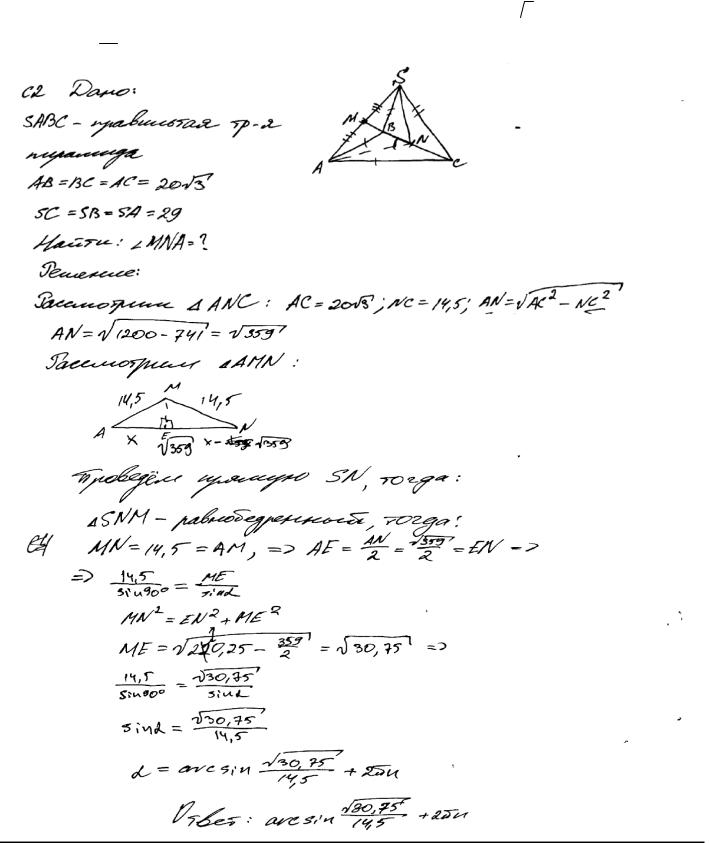 С2 Дано:
SABC - правильная тр-я
пирамида
AB = BC = AC = 20√3
SC = SB = SA = 29
Найти: ∠MNA = ?
Решение:
S
M
B
N
A
C
Рассмотрим △ANC: AC = 20√3; NC = 14,5; AN = √AC² - NC²
AN = √1200 - 741 = √359
Рассмотрим △AMN:
14,5 M 14,5
A E N
x √359 x - √359
Проведём прямую SN, тогда:
△SNM - равнобедренный, тогда:
MN = 14,5 = AM, => AE = AN/2 = √359/2 = EN =>
=> 14,5/sin90° = ME/sinα
MN² = EN² + ME²
ME = √210,25 - 359/2 = √30,75 =>
14,5/sin90° = √30,75/sinα
sinα = √30,75/14,5
α = arcsin √30,75/14,5 + 2πn
Ответ: arcsin √30,75/14,5 + 2πn